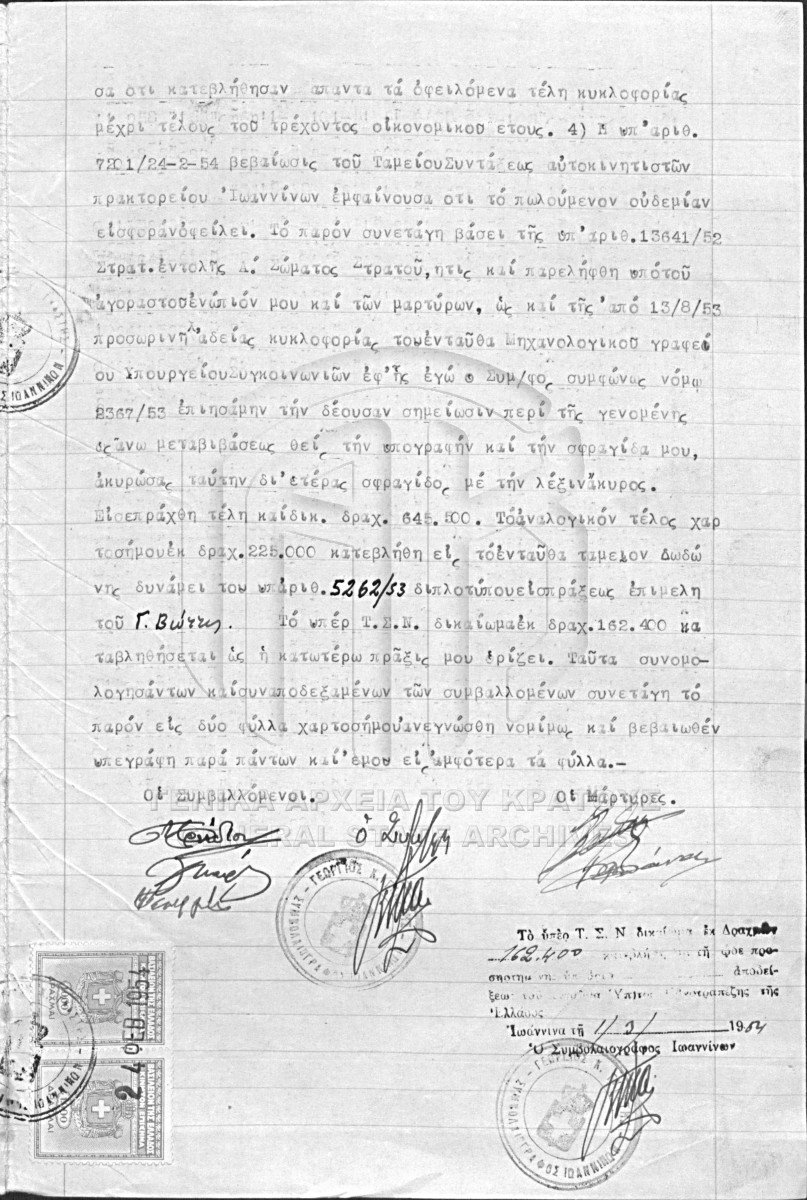 σα οτι κατεβλήθησαν απαντα τά ὀφειλόμενα τέλη κυκλοφορίας
μέχρι τέλους τοῦ τρέχοντος οἰκονομικοῦ ετους. 4) Η υπ'αριθ.
7201/24-2-54 βεβαίωσις τοῦ ΤαμείουΣυντάξεως αὐτοκινητιστῶν
πρακτορείου 'Ιωαννίνων ἐμφαίνουσα οτι τό πωλούμενον οὐδεμίαν
εἰσφοράνὀφείλει. Τό παρόν συνετάγη βάσει τῆς υπ'αριθ.13641/52
Στρατ.ἐντολῆς Α΄ Σώματος Στρατοῦ,ητις καί παρελήφθη υπότοῦ
ἀγοραστοῦἐνώπιόν μου καί τῶν μαρτύρων, ὡς καί τῆς ἀπό 13/8/53
προσωρινῆς ἀδείας κυκλοφορίας τουἐνταῦθα Μηχανολογικοῦ γραφεί
ου ΥπουργείουΣυγκοινωνιῶν ἐφ'ῆς ἐγώ ο Συμ/φος συμφώνως νόμῳ
2367/53 ἐπιησάμην τήν δέουσαν σημείωσιν περί τῆς γενομένης
ὡς ἄνω μεταβιβάσεως θείς τήν υπογραφήν καί τήν σφραγίδα μου,
ἀκυρώσας ταύτην δι'ετέρας σφραγίδος μέ τήν λέξινἄκυρος.
Εἰσεπράχθη τέλη καίδικ. δραχ. 645.500. Τόἀναλογικόν τέλος χαρ
τοσήμουἐκ δραχ.225.000 κατεβλήθη εἰς τόἐνταῦθα ταμεῖον Δωδώ
νης δυνάμει του υπάριθ.5262/53 διπλοτύπουεἰσπράξεως ἐπιμελη
τοῦ Γ. Βώττη. Τό υπέρ Τ.Σ.Ν. δικαίωμαἐκ δραχ.162.400 κα
ταβληθήσεται ὡς ἡ κατωτέρω πρᾶξις μου ὁρίζει. Ταῦτα συνομο-
λογησάντων καίσυναποδεξαμένων τῶν συμβαλλομένων συνετάγη τό
παρόν εἰς δύο φύλλα χαρτοσήμουἀνεγνώσθη νομίμως καί βεβαιωθέν
υπεγράφη παρά πάντων καί'ἐμου εἰς ἀμφότερα τά φύλλα.-
Οἱ Συμβαλλόμενοι. Οἱ Μάρτυρες.
ΓΕΝΙΚΑ ΑΡΧΕΙΑ ΤΟΥ ΚΡΑΤΟΥΣ
GENERAL STATE ARCHIVES
ὁ Συμ/φος
ΣΥΜΒΟΛΑΙΟΓΡΑΦΟΣ ΙΩΑΝΝΙΝΩΝ - ΓΕΩΡΓΙΟΣ Χ.
Τὸ ὑπὲρ Τ. Σ. Ν δικαίωμα ἐκ Δραχμῶν
162.400 τῇ ᾧδε προ-
ἀποδεί-
ξεως τοῦ τῆς
Ἑλλάδος
Ἰωάννινα τῇ 1/3/ 1954
Ὁ Συμβολαιογράφος Ἰωαννίνων
ΒΑΣΙΛΕΙΟΝ ΤΗΣ ΕΛΛΑΔΟΣ
24 ΦΕΒ 1954
ΒΑΣΙΛΕΙΟΝ ΤΗΣ ΕΛΛΑΔΟΣ